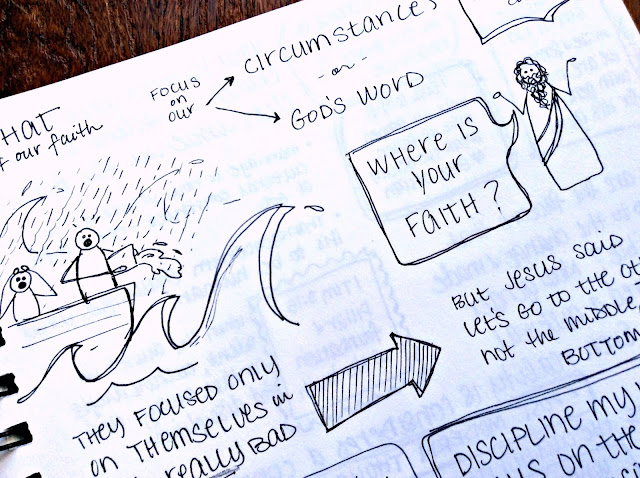 CIRCUMSTANCES
FOCUS
ON
OUR
- or -
GOD'S WORD
HAT
our faith
WHERE IS
YOUR
FAITH?
BUT JESUS SAID
LET'S GO TO THE
not the MIDDLE,
BOTTOM
THEY FOCUSED ONLY
ON THEMSELVES in
REALLY BAD
DISCIPLINE MY
ON THE